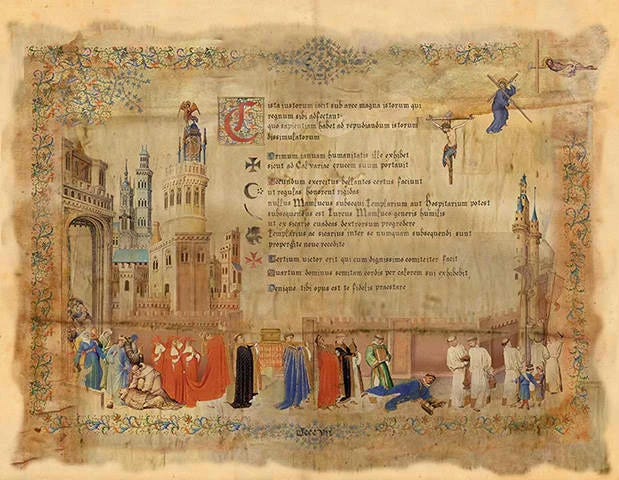 Cista justorum iacit sub arce magna istorum qui
regnum sibi adfectant
quo sapientiam habet ad repudiandum istorum
dissimulatorum
Primum ianuam humanitatis ille exhibet
sicut ad Calvariae crucem suum portavit
Secundum exercitus bellantes certus faciunt
ut regulas honorent rigidas
nullus Mamlucus subsequi Templarium aut Hospitarium potest
subsequendus est Turcus Mamlucus generis humilis
ut ex sicario evadens dextrorsum progredere
Templarius ac sicarius inter se numquam subsequendi sunt
propergite neve recedite
Tertium victor erit qui cum dignissimo comiterter facit
Quartum dominus semitam cordis per calorem sui exhibebit
Denique tibi opus est te fidelis praestare